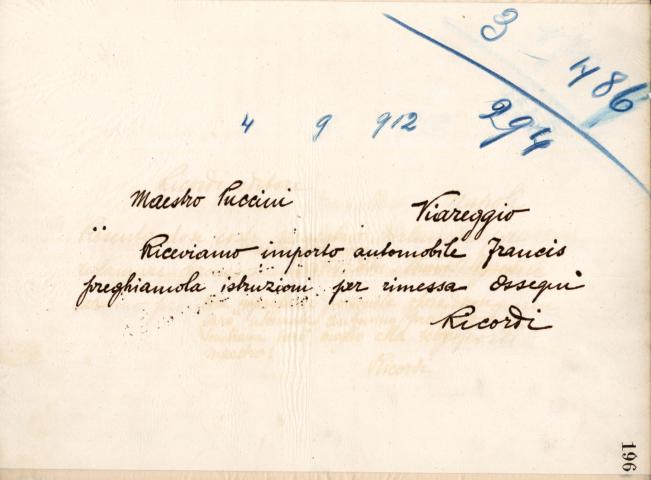 3 - 486
4 9 912 294
Maestro Puccini Viareggio
Riceviamo importo automobile Francis
preghiamola istruzioni per rimessa ossequi
Ricordi
196